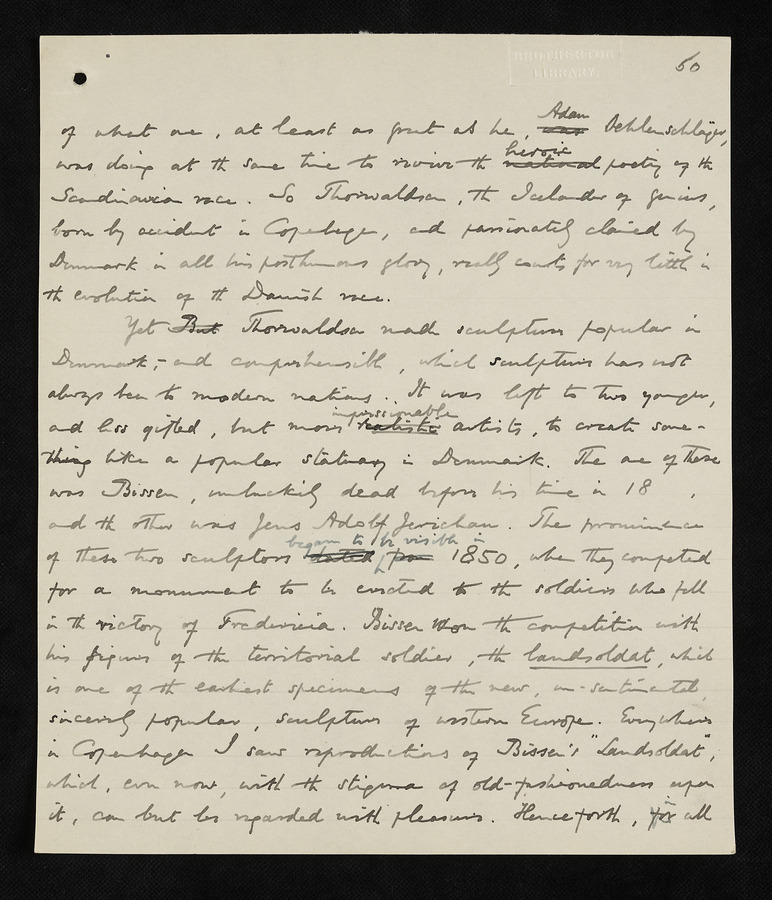 BROTHERTON
LIBRARY.
50
Adam
of what one, at least as great as he, was Oehlenschläger,
heroic
was doing at the same time to revive the national poetry of the
Scandinavian race. So Thorwaldsen, the Icelander of genius,
born by accident in Copenhagen, and passionately claimed by
Denmark in all his posthumous glory, really counts for very little in
the evolution of the Danish race.
Yet But Thorwaldsen made sculpture popular in
Denmark, and comprehensible, which sculpture has not
always been to modern nations. It was left to two younger,
impressionable
and less gifted, but more realistic artists, to create some-
thing like a popular statuary in Denmark. The one of these
was Bissen, unluckily dead before his time in 18 ,
and the other was Jens Adolf Jerichau. The prominence
began to be visible in
of these two sculptors dated from 1850, when they competed
for a monument to be erected to the soldiers who fell
in the victory of Fredericia. Bissen won the competition with
his figure of the territorial soldier, the landsoldat, which
is one of the earliest specimens of the new, un-sentimental,
sincerely popular, sculpture of western Europe. Everywhere
in Copenhagen I saw reproductions of Bissen's "Landsoldat",
which, even now, with the stigma of old-fashionedness upon
it, can but be regarded with pleasure. Henceforth, for in all